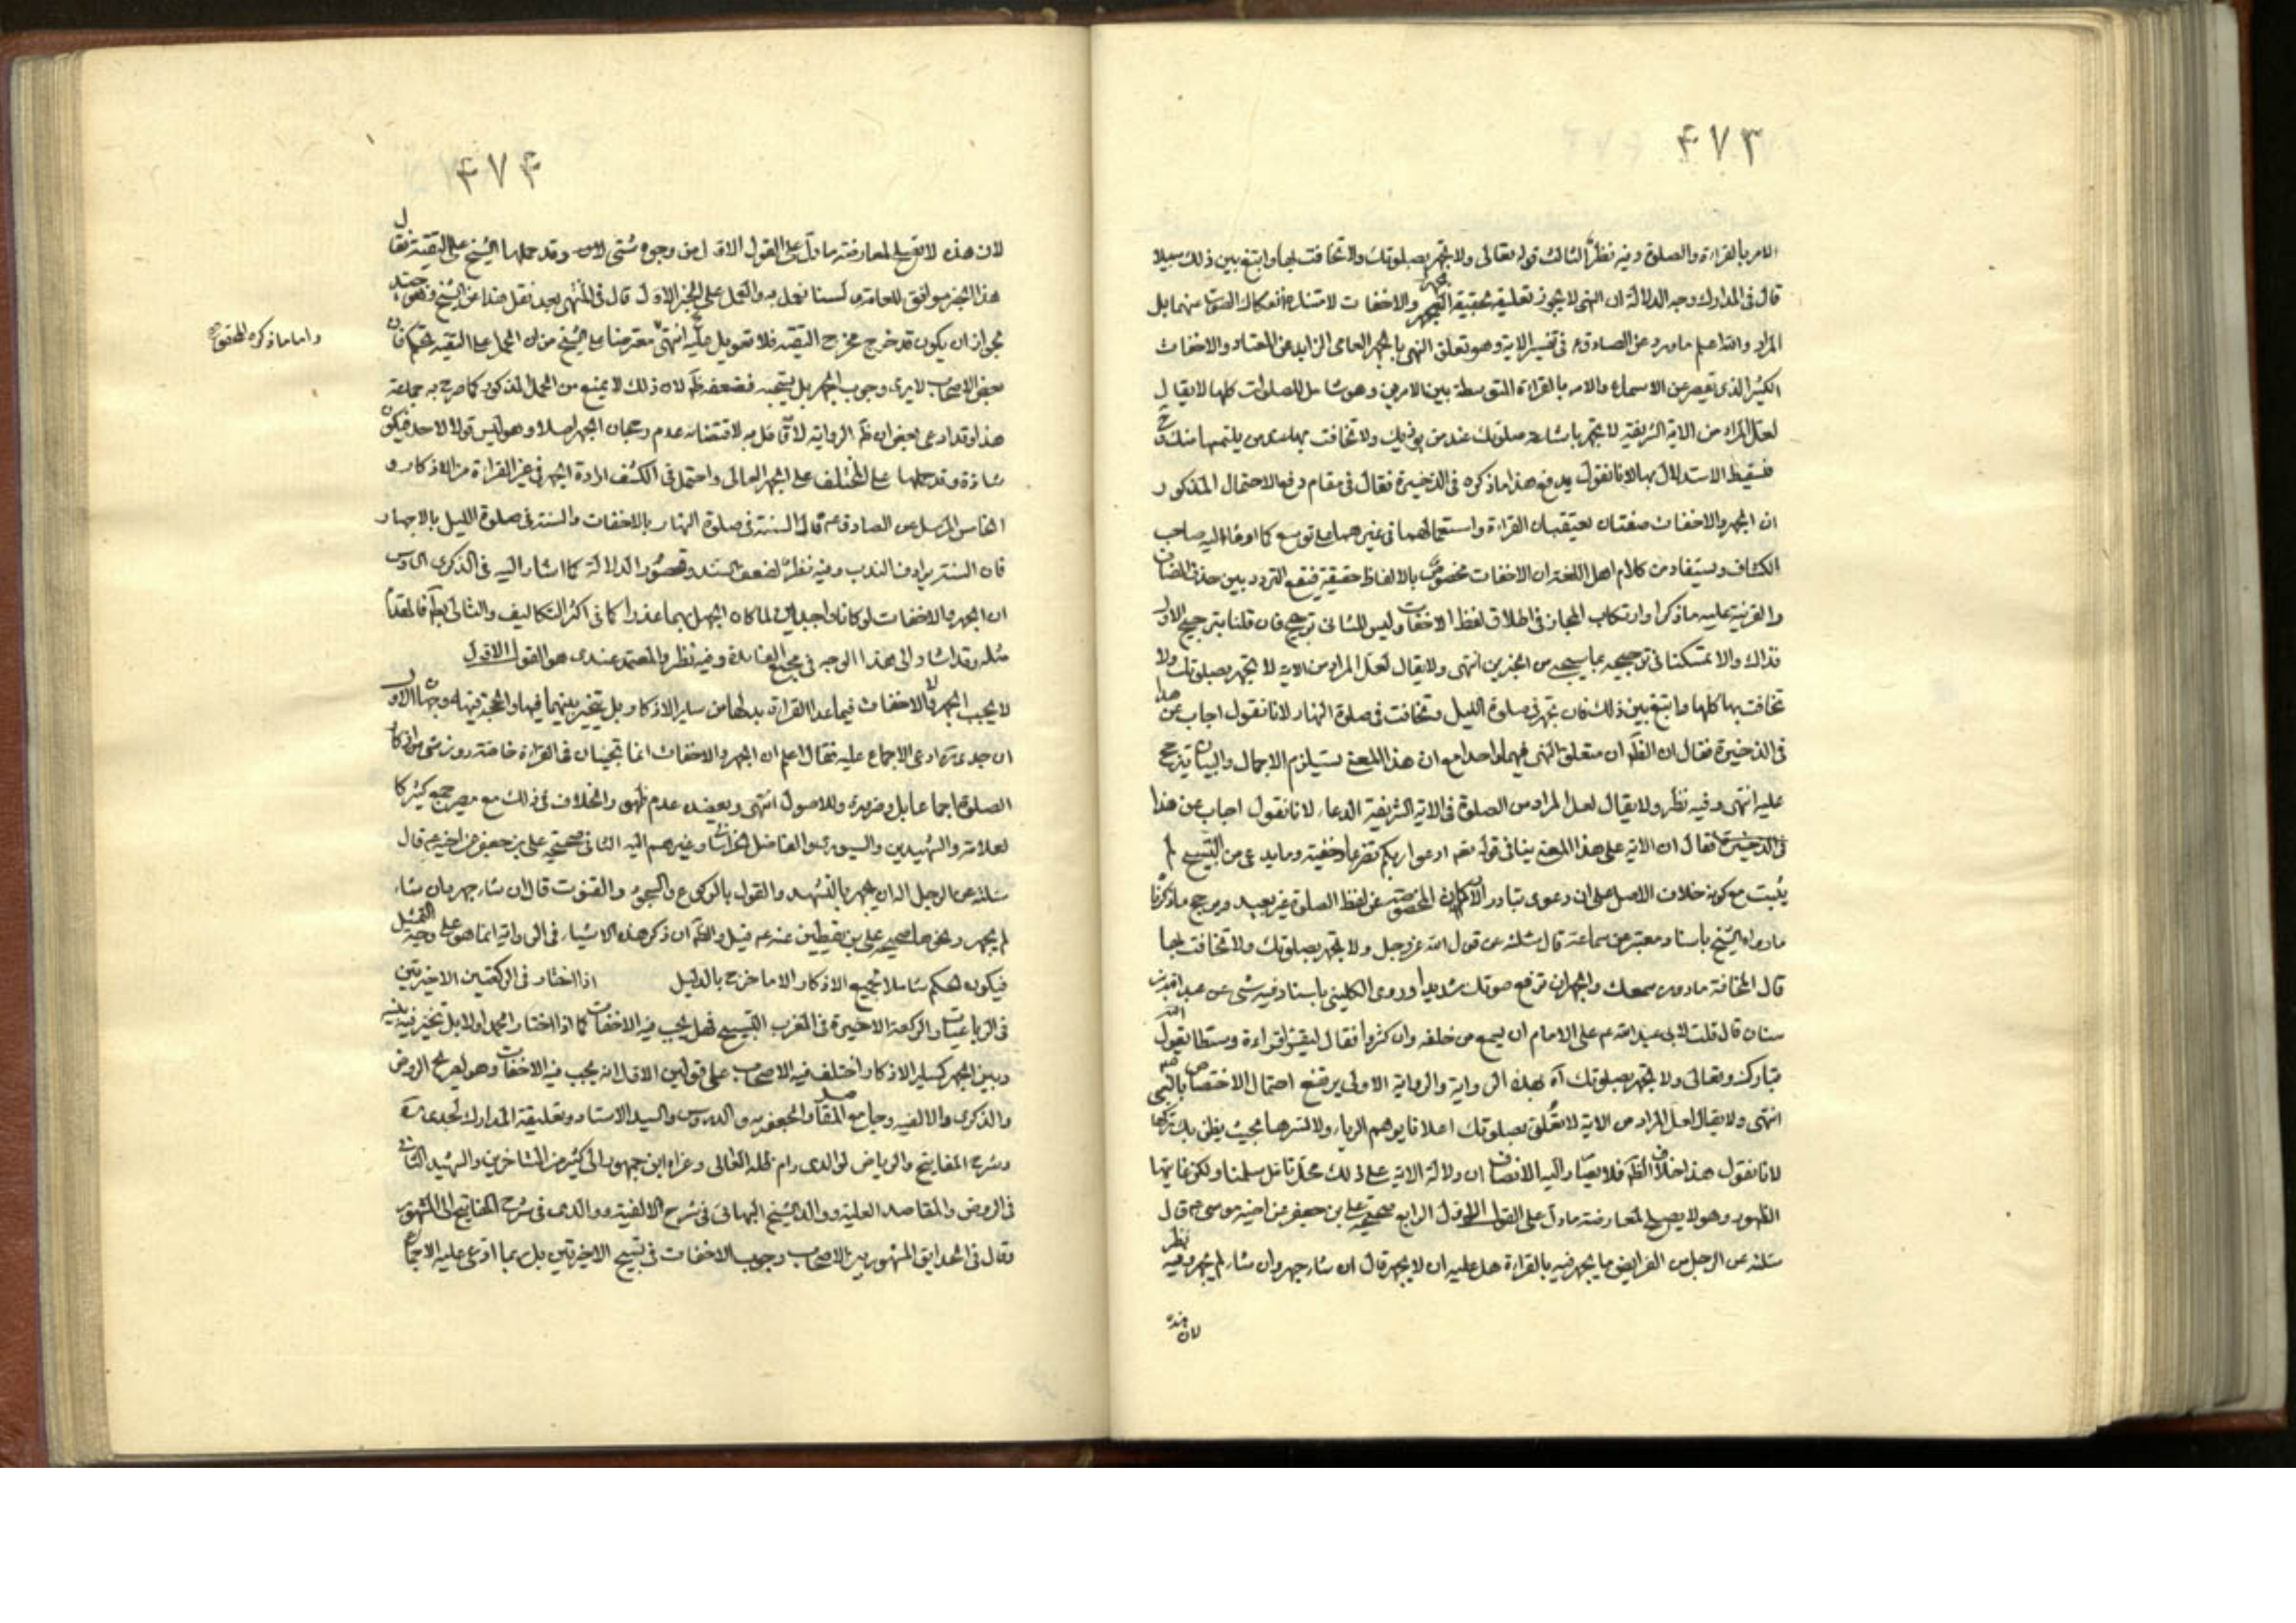 ۴۷۳
الامر بالقراءة والصلوة وفيه نظر الثالث قوله تعالى ولا تجهر بصلوتك ولا تخافت بها وابتغ بين ذلك سبيلا
قال فى المدارك وجه الدلالة ان النهى لا يجوز تعلقه بحقيقة الجهر والاخفات لامتناع انفكاك الصوت منهما بل
المراد والله اعلم ما ورد عن الصادق ع فى تفسير الاية وهو تعلق النهى بالجهر العالى الزايد عن المعتاد والاخفات
الكثير الذى يقصر عن الاسماع والامر بالقراءة المتوسطة بين الامرين وهو شامل للصلوات كلها لا يقال
لعل المراد من الاية الشريفة لا تجهر باشاعة صلوتك عند من يؤذيك ولا تخافت بها عند من يلتمسها منك
فسقط الاستدلال بها لانا نقول يدفع هذا ما ذكره فى الذخيرة فقال فى مقام دفع الاحتمال المذكور
ان الجهر والاخفات صفتان حقيقيتان القراءة واستعمالهما فى غيرهما على توسع كما اومأ اليه صاحب
الكشاف ويستفاد من كلام اهل اللغة ان الاخفات مخصوص بالالفاظ حقيقة فيقع التردد بين حذف المضاف
والقرينة عليه ما ذكر او ارتكاب المجاز فى اطلاق لفظ الاخفات وليس للثانى ترجيح فان قلنا بترجيح الاول
فذاك والا تمسكنا فى ترجيحه بما سيجىء من الخبرين انتهى ولا يقال لعل المراد من الاية لا تجهر بصلوتك ولا
تخافت بها كلها وابتغ بين ذلك فان تجهر فى صلوة الليل وتخافت فى صلوة النهار لانا نقول اجاب عن هذا
فى الذخيرة فقال ان الظ ان متعلق النهى فيهما واحد مع ان هذا المعنى يستلزم الاجمال والبيان يترجح
عليه انتهى وفيه نظر ولا يقال لعل المراد من الصلوة فى الاية الشريفة الدعاء لانا نقول اجاب عن هذا
فى الذخيرة فقال ان الاية على هذا المعنى ينافى قوله تعه ادعوا ربكم تضرعا وخفية وما يدعى من النسخ لم
يثبت مع كونه خلاف الاصل على ان دعوى تبادر الاركان المخصوصة عن لفظ الصلوة غير بعيد ويرجح ما ذكرنا
ما رواه الشيخ باسناد معتبر عن سماعة قال سئلته عن قول الله عز وجل ولا تجهر بصلوتك ولا تخافت بها
قال المخافتة ما دون سمعك والجهر ان ترفع صوتك شديدا وروى الكلينى باسناد فيه شىء عن عبد الله بن
سنان قال قلت لابى عبد الله ع على الامام ان يسمع من خلفه وان كثروا فقال ليقرأ قراءة وسطا يقول الله
تبارك وتعالى ولا تجهر بصلوتك اه بهذه الرواية والرواية الاولى يرتفع احتمال الاختصاص بالنبى
انتهى ولا يقال لعل المراد من الاية لا تعلن بصلوتك اعلانا يوهم الرياء ولا تسرها بحيث يظن بك تركها
لانا نقول هذا خلاف الظ فلا يصار اليه الانصاف ان دلالة الاية على ذلك محل تامل سلمنا ولكن غايتها
الظهور وهو لا يصلح لمعارضة ما دل على القول الاول الرابع صحيحة على بن جعفر عن اخيه موسى ع قال
سئلته عن الرجل من الفرايض ما يجهر فيه بالقراءة هل عليه ان لا يجهر قال ان شاء جهر وان شاء لم يجهر وفيه نظر
لان هذه
۴۷۴
لان هذه لا تصلح لمعارضة ما دل على القول الاول من وجوه شتى وقد حملها الشيخ على التقية فقال
هذا الخبر موافق للعامة و لسنا نعمل به والعمل على الخبر الاول قال فى المنتهى بعد نقل هذا عن الشيخ وهو جيد
واما ما ذكره المحقق
لجواز ان يكون قد خرج مخرج التقية فلا تعويل عليه انتهى معترضا على الشيخ من ان الحمل على التقية تحكم فان
بعض الاصحاب لا يرى وجوب الجهر بل يستحبه فضعفه ظ لان ذلك لا يمنع من الحمل المذكور كما صرح به جماعة
هذا وقد ادعى بعض ان ظ الرواية لا قائل به لاقتضائه عدم رجحان الجهر اصلا وهو ليس قولا لاحد فيكون
شاذة وقد حملها على المختلف على الجهر العالى واحتمل فى الكشف ارادة الجهر فى غير القراءة من الاذكار و
الخامس المرسل عن الصادق ع قال السنة فى صلوة النهار بالاخفات والسنة فى صلوة الليل بالاجهار
فان السنة يرادف الندب وفيه نظر لضعف السند وقصور الدلالة كما اشار اليه فى الذكرى السادس
ان الجهر والاخفات لو كانا واجبين لما كان الجهل بهما عذرا كما فى اكثر التكاليف والتالى بط فالمقدم
مثله وقد اشار الى هذا الوجه فى مجمع الفائدة وفيه نظر والمعتمد عندى هو القول الاول
لا يجب الجهر ولا الاخفات فيما عدا القراءة بدلها من ساير الاذكار بل يتخير بينهما فيها والحجة فيه وجهان الاول
ان جدى ره ادعى الاجماع عليه فقال اعلم ان الجهر والاخفات انما تجبان فى القراءة خاصة دون شىء من اذكار
الصلوة اجماعا بل وضرورة وللاصول انتهى ويعضده عدم ظهور الخلاف فى ذلك مع مصير جمع كثير كا
لعلامة والشهيدين والسيورى والفاضل الخراسانى وغيرهم اليه الثانى صحيحة على بن جعفر عن اخيه ع قال
سئلته عن الرجل اله ان يجهر بالتشهد والقول بالركوع والسجود والقنوت قال ان شاء جهر وان شاء
لم يجهر ونحوها صحيحة على بن يقطين عنه ع قيل والظ ان ذكر هذه الاشياء فى الرواية انما هو على وجه التمثيل
فيكون الحكم شاملا لجميع الاذكار الا ما خرج بالدليل اذا اختار فى الركعتين الاخيرتين
فى الرباعيات والركعة الاخيرة فى المغرب التسبيح فهل يجب فيه الاخفات كما اذا اختار الحمد اولا بل يتخير فيه بينه
وبين الجهر كساير الاذكار اختلف فيه الاصحاب على قولين الاول انه يجب فيه الاخفات وهو لصريح الروض
والذكرى والالفية وجامع المقاصد والجعفرية والدروس والسيد الاستاد وتعليقة المدارك لجدى ره
وشرح المفاتيح والرياض لوالدى دام ظله العالى وعزاه ابن جمهور الى كثير من المتاخرين والشهيد الثانى
فى الروض والمقاصد العلية ووالد الشيخ البهائى فى شرح الالفية ووالدى فى شرح المفاتيح الى المشهور
وقال فى الحدايق المشهور بين الاصحاب وجوب الاخفات فى تسبيح الاخيرتين بل ربما ادعى عليه الاجماع